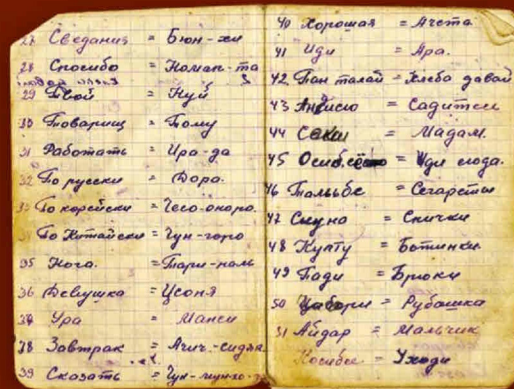 27 Сведания = Бюн-хи
28 Спосибо = Коман-та
29 Твой = Нуй
30 Товарищ = Тому
31 Работать = Ира-да
32 По русски = Вора.
По корейски = Чосо-окоро.
По Китайски = Гун-горо
35 Нога. = Тари-наль
36 Девушка = Цсоня
Ура = Манси
38 Завтрак = Ачич-сидла
39 Сказать =
40 Хорошая = Ачета.
41 Иди = Ара.
42 Пан талай = Хлеба давай
43 = Садитеси
44 = Мадам.
45 = Иди сюда.
46 Тальбе = Сегареты
47 = Спички
48 Купту = Ботинки.
49 Пади = Брюки
50 = Рубашка
51 Айдар = Мальчик
Косибее = Уходи